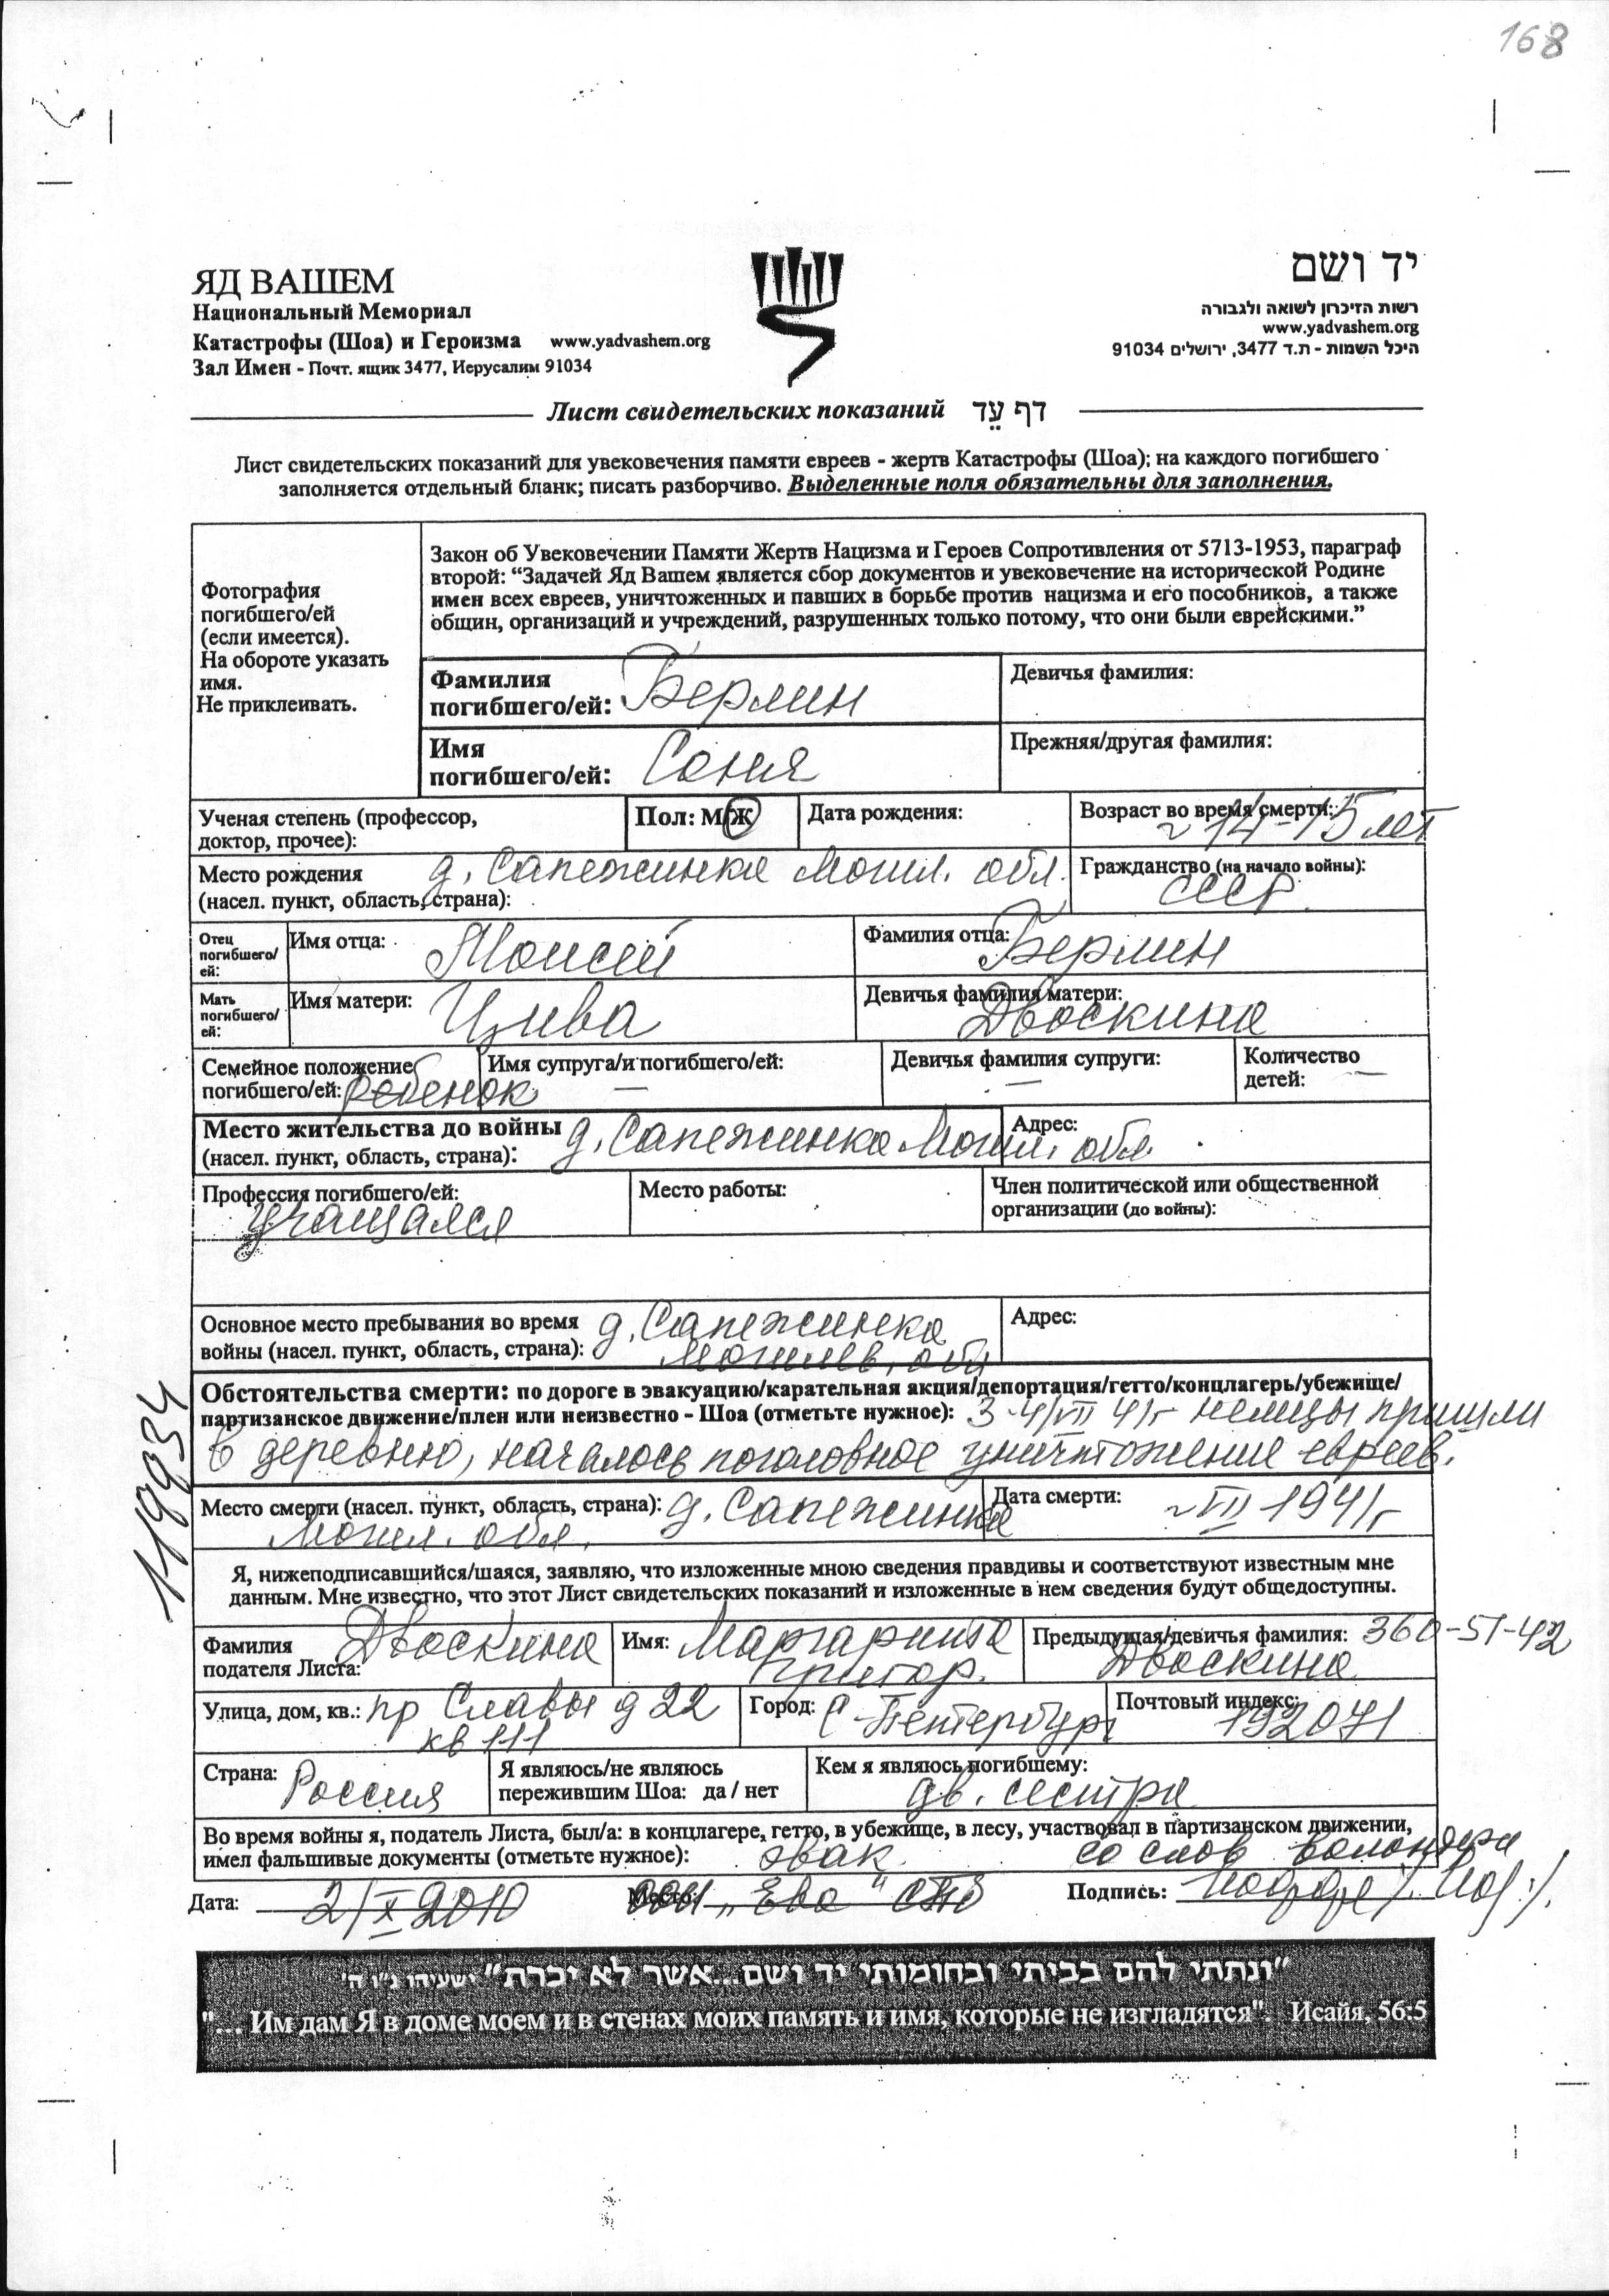 168
ЯД ВАШЕМ
Национальный Мемориал
Катастрофы (Шоа) и Героизма www.yadvashem.org
Зал Имен - Почт. ящик 3477, Иерусалим 91034
יד ושם
רשות הזיכרון לשואה ולגבורה
www.yadvashem.org
היכל השמות - ת.ד 3477, ירושלים 91034
Лист свидетельских показаний דף עֵד
Лист свидетельских показаний для увековечения памяти евреев - жертв Катастрофы (Шоа); на каждого погибшего
заполняется отдельный бланк; писать разборчиво. Выделенные поля обязательны для заполнения.
Фотография
погибшего/ей
(если имеется).
На обороте указать
имя.
Не приклеивать.
Закон об Увековечении Памяти Жертв Нацизма и Героев Сопротивления от 5713-1953, параграф
второй: “Задачей Яд Вашем является сбор документов и увековечение на исторической Родине
имен всех евреев, уничтоженных и павших в борьбе против нацизма и его пособников, а также
общин, организаций и учреждений, разрушенных только потому, что они были еврейскими.”
Фамилия
погибшего/ей: Берлин
Девичья фамилия:
Имя
погибшего/ей: Соня
Прежняя/другая фамилия:
Ученая степень (профессор,
доктор, прочее):
Пол: М/Ж
Дата рождения:
Возраст во время смерти:
~ 14-15 лет
Место рождения д. Сапежинка Могил. обл.
(насел. пункт, область, страна):
Гражданство (на начало войны):
СССР
Отец
погибшего/
ей:
Имя отца: Моисей
Фамилия отца: Берлин
Мать
погибшего/
ей:
Имя матери: Цива
Девичья фамилия матери:
Двоскина
Семейное положение
погибшего/ей: ребенок
Имя супруга/и погибшего/ей:
—
Девичья фамилия супруги:
—
Количество
детей: —
Место жительства до войны д. Сапежинка Могил. обл.
(насел. пункт, область, страна):
Адрес:
Профессия погибшего/ей:
учащаяся
Место работы:
Член политической или общественной
организации (до войны):
Основное место пребывания во время д. Сапежинка
войны (насел. пункт, область, страна): Могилев. обл
Адрес:
Обстоятельства смерти: по дороге в эвакуацию/карательная акция/депортация/гетто/концлагерь/убежище/
партизанское движение/плен или неизвестно - Шоа (отметьте нужное): 3-4/VII 41г немцы пришли
в деревню, началось поголовное уничтожение евреев.
Место смерти (насел. пункт, область, страна): д. Сапежинка
Могил. обл.
Дата смерти: ~ VII 1941г
119934
Я, нижеподписавшийся/шаяся, заявляю, что изложенные мною сведения правдивы и соответствуют известным мне
данным. Мне известно, что этот Лист свидетельских показаний и изложенные в нем сведения будут общедоступны.
Фамилия
подателя Листа: Двоскина
Имя: Маргарита
Григор.
Предыдущая/девичья фамилия: 360-51-42
Двоскина
Улица, дом, кв.: пр Славы д 22
кв 111
Город: С-Петербург
Почтовый индекс:
192071
Страна: Россия
Я являюсь/не являюсь
пережившим Шоа: да / нет
Кем я являюсь погибшему:
дв. сестра
Во время войны я, податель Листа, был/а: в концлагере, гетто, в убежище, в лесу, участвовал в партизанском движении,
имел фальшивые документы (отметьте нужное): эвак. со слов волонтера
Дата: 2/X 2010
Место: "Ева" СПб
Подпись:
"ונתתי להם בביתי ובחומותי יד ושם...אשר לא יכרת" ישעיהו נ"ו ה'
"... Им дам Я в доме моем и в стенах моих память и имя, которые не изгладятся". Исайя, 56:5